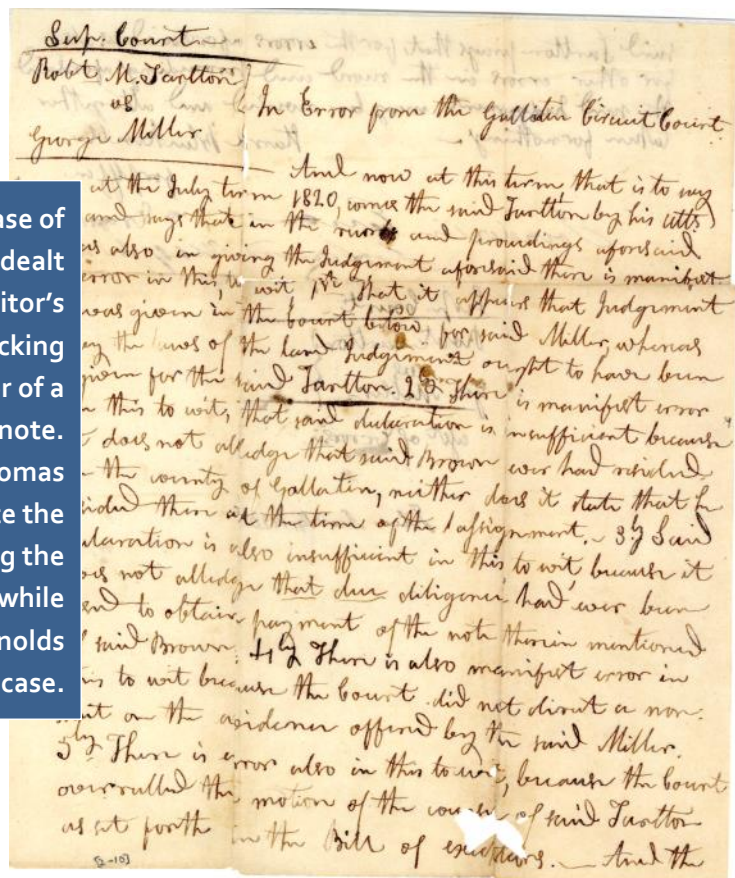 Sup. Court
Robt M. Tarlton
vs
George Miller
In Error from the Gallatin Circuit Court
And now at this term that is to say
at the July term 1820, comes the said Tarlton by his atts
and says that in the record and proceedings aforesaid
as also in giving the Judgement aforesaid there is manifest
error in this, to wit 1st That it appears that Judgement
was given in the Court below for said Miller, whereas
by the laws of the land Judgement ought to have been
given for the said Tarlton. 2d There is manifest error
in this to wit, that said declaration is insufficient because
does not alledge that said Brown ever had resided
the county of Gallatin, neither does it state that he
resided there at the time of the assignment. 3ly Said
declaration is also insufficient in this to wit because it
does not alledge that due diligence had ever been
used to obtain payment of the note therein mentioned
said Brown. 4ly There is also manifest error in
this to wit because the Court did not direct a non-
suit on the evidence offered by the said Miller.
5ly There is error also in this to wit, because the Court
overrulled the motion of the counsel of said Tarlton
as set forth in the Bill of exceptions. And the
nse of
dealt
itor's
cking
r of a
note.
omas
e the
g the
while
nolds
case.